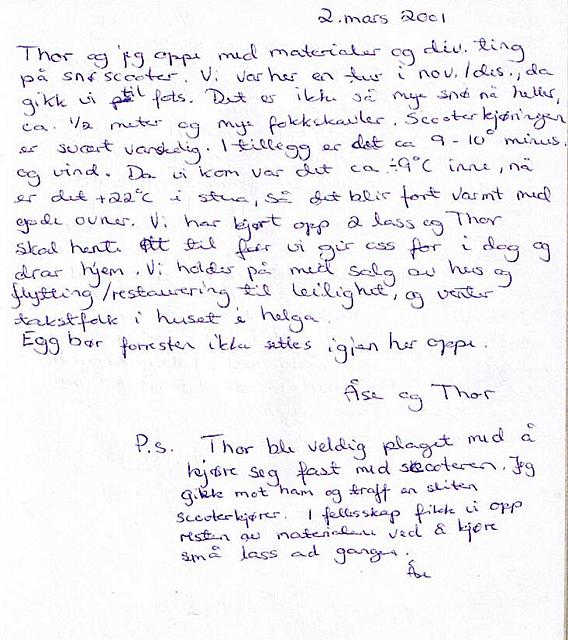 2. mars 2001
Thor og jeg oppe med materialer og div. ting
på snøscooter. Vi var her en tur i nov./des., da
gikk vi til fots. Det er ikke så mye snø nå heller,
ca. 1/2 meter og mye fokkskavler. Scooterkjøringen
er svært vanskelig. I tillegg er det ca 9-10° minus.
og vind. Da vi kom var det ca ÷9°C inne, nå
er det +22°C i stua, så det blir fort varmt med
gode ovner. Vi har kjørt opp 2 lass og Thor
skal hente til før vi gir oss for i dag og
drar hjem. Vi holder på med salg av hus og
flytting/restaurering til leilighet, og venter
takstfolk i huset i helga.
Egg bør forresten ikke settes igjen her oppe.
Åse og Thor
P.s. Thor ble veldig plaget med å
kjøre seg fast med scooteren. Jeg
gikk mot ham og traff en sliten
scooterkjører. I fellesskap fikk vi opp
resten av materialene ved å kjøre
små lass ad gangen.
Åse